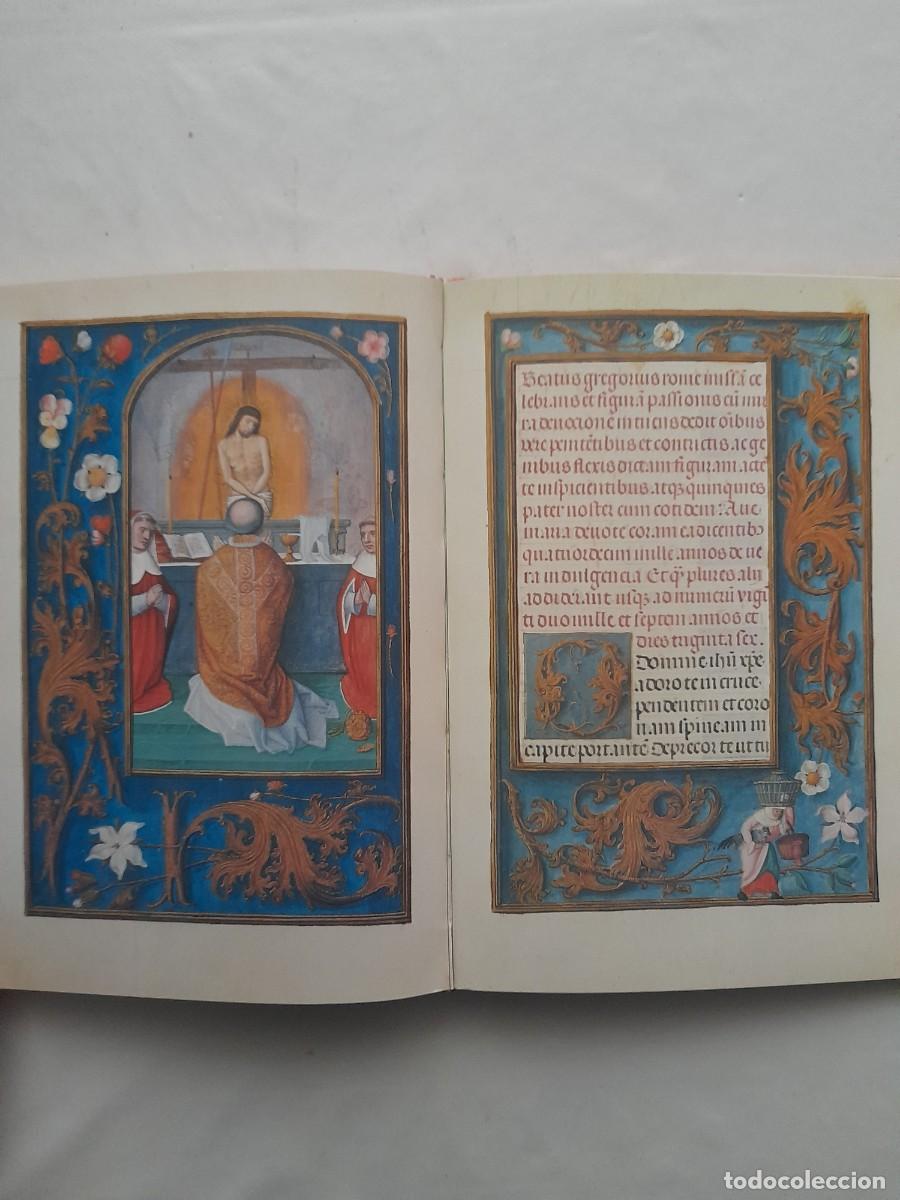 Beatus gregorius rome missā ce
lebrans et figurā passionis cū mi
ra devocione intuens dedit oībus
vere penitētibus et contrictis ac ge
nibus flexis dictam figuram acte
te inspicientibus atqȝ quinquies
pater noster cum totidem: Ave
maria devote coram ea dicentibȝ
quatuordecim mille annos de ve
ra indulgencia Et qȝ plures alij
addiderant usqȝ ad numerū vigī
ti duo mille et septem annos et
dies triginta sex.
Domine ihū xpē
adoro te in cruce
pendentem et coro
nam spineam in
capite portantē Deprecor te ut tu
todocoleccion